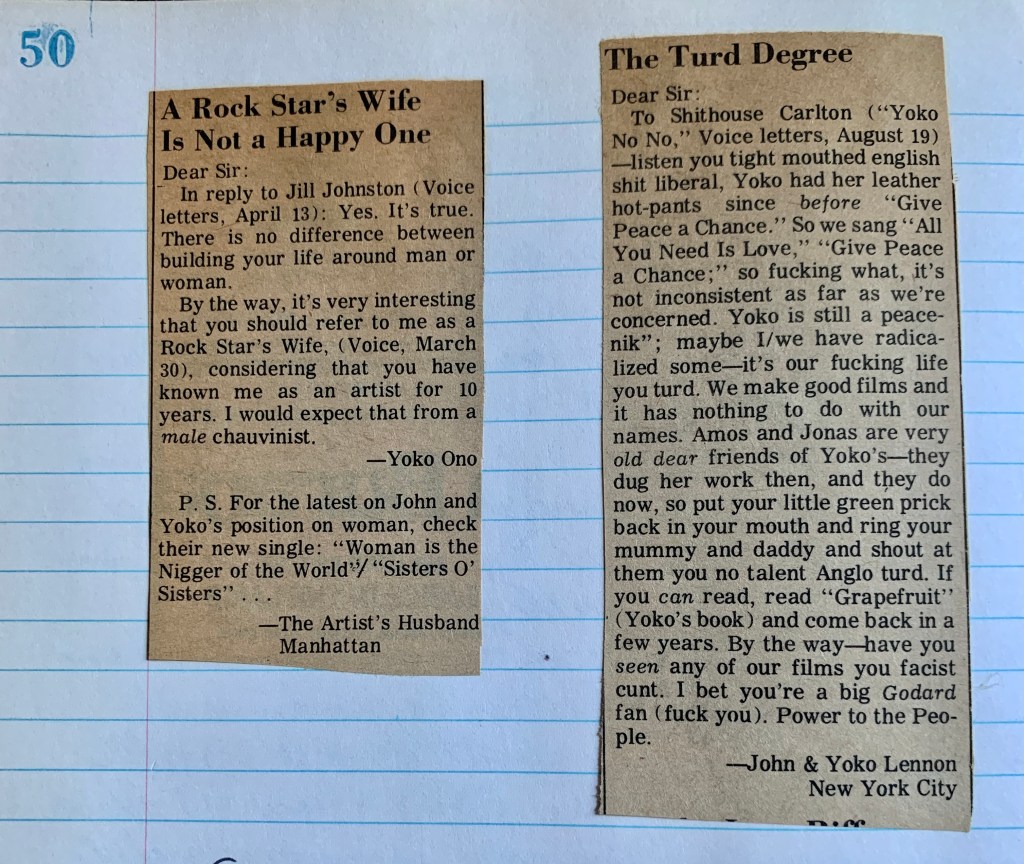 50
A Rock Star's Wife
Is Not a Happy One
Dear Sir:
In reply to Jill Johnston (Voice
letters, April 13): Yes. It's true.
There is no difference between
building your life around man or
woman.
By the way, it's very interesting
that you should refer to me as a
Rock Star's Wife, (Voice, March
30), considering that you have
known me as an artist for 10
years. I would expect that from a
male chauvinist.
—Yoko Ono
P. S. For the latest on John and
Yoko's position on woman, check
their new single: “Woman is the
Nigger of the World”/“Sisters O'
Sisters” . . .
—The Artist's Husband
Manhattan
The Turd Degree
Dear Sir:
To Shithouse Carlton (“Yoko
No No,” Voice letters, August 19)
—listen you tight mouthed english
shit liberal, Yoko had her leather
hot-pants since before “Give
Peace a Chance.” So we sang “All
You Need Is Love,” “Give Peace
a Chance;” so fucking what, it's
not inconsistent as far as we're
concerned. Yoko is still a peace-
nik”; maybe I/we have radica-
lized some—it's our fucking life
you turd. We make good films and
it has nothing to do with our
names. Amos and Jonas are very
old dear friends of Yoko's—they
dug her work then, and they do
now, so put your little green prick
back in your mouth and ring your
mummy and daddy and shout at
them you no talent Anglo turd. If
you can read, read “Grapefruit”
(Yoko's book) and come back in a
few years. By the way—have you
seen any of our films you facist
cunt. I bet you're a big Godard
fan (fuck you). Power to the Peo-
ple.
—John & Yoko Lennon
New York City